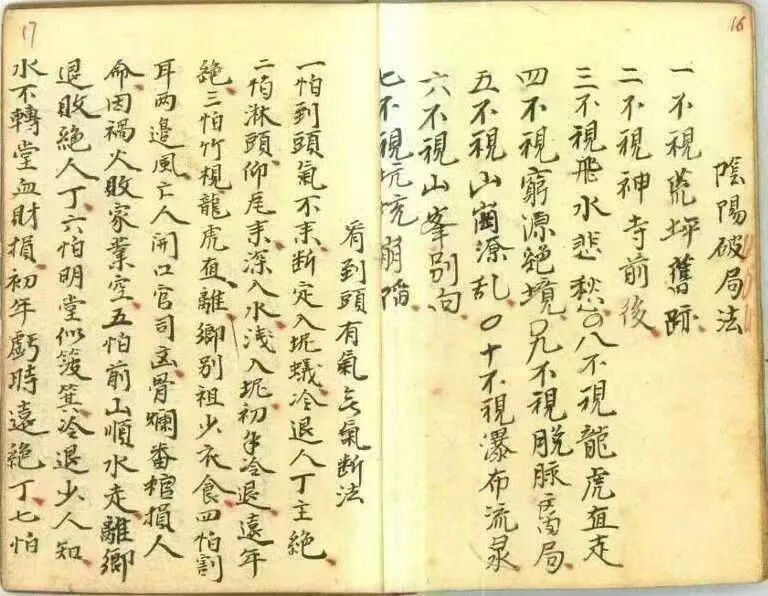 16
陰陽破局法
一不視荒坪舊跡
二不視神寺前後
三不視飛水悲愁〇八不視龍虎直走
四不視窮源絕境〇九不視脫脈离局
五不視山崗潦乱〇十不視瀑布流泉
六不視山峯别向
七不視坑坎崩陷
17
看到頭有氣無氣断法
一怕到頭氣不来断定入坭蟻冷退人丁主絕
二怕淋頭仰尾来深入水浅入坭初年冷退遠年
絕三怕竹梘龍虎直離鄉别祖少衣食四怕割
耳两邊風亡人開口官司至骨爛番棺損人
命因禍火敗家業空五怕前山順水走離鄉
退敗絕人丁六怕明堂似簸箕冷退少人知
水不轉堂血財損初年虧時遠絕丁七怕